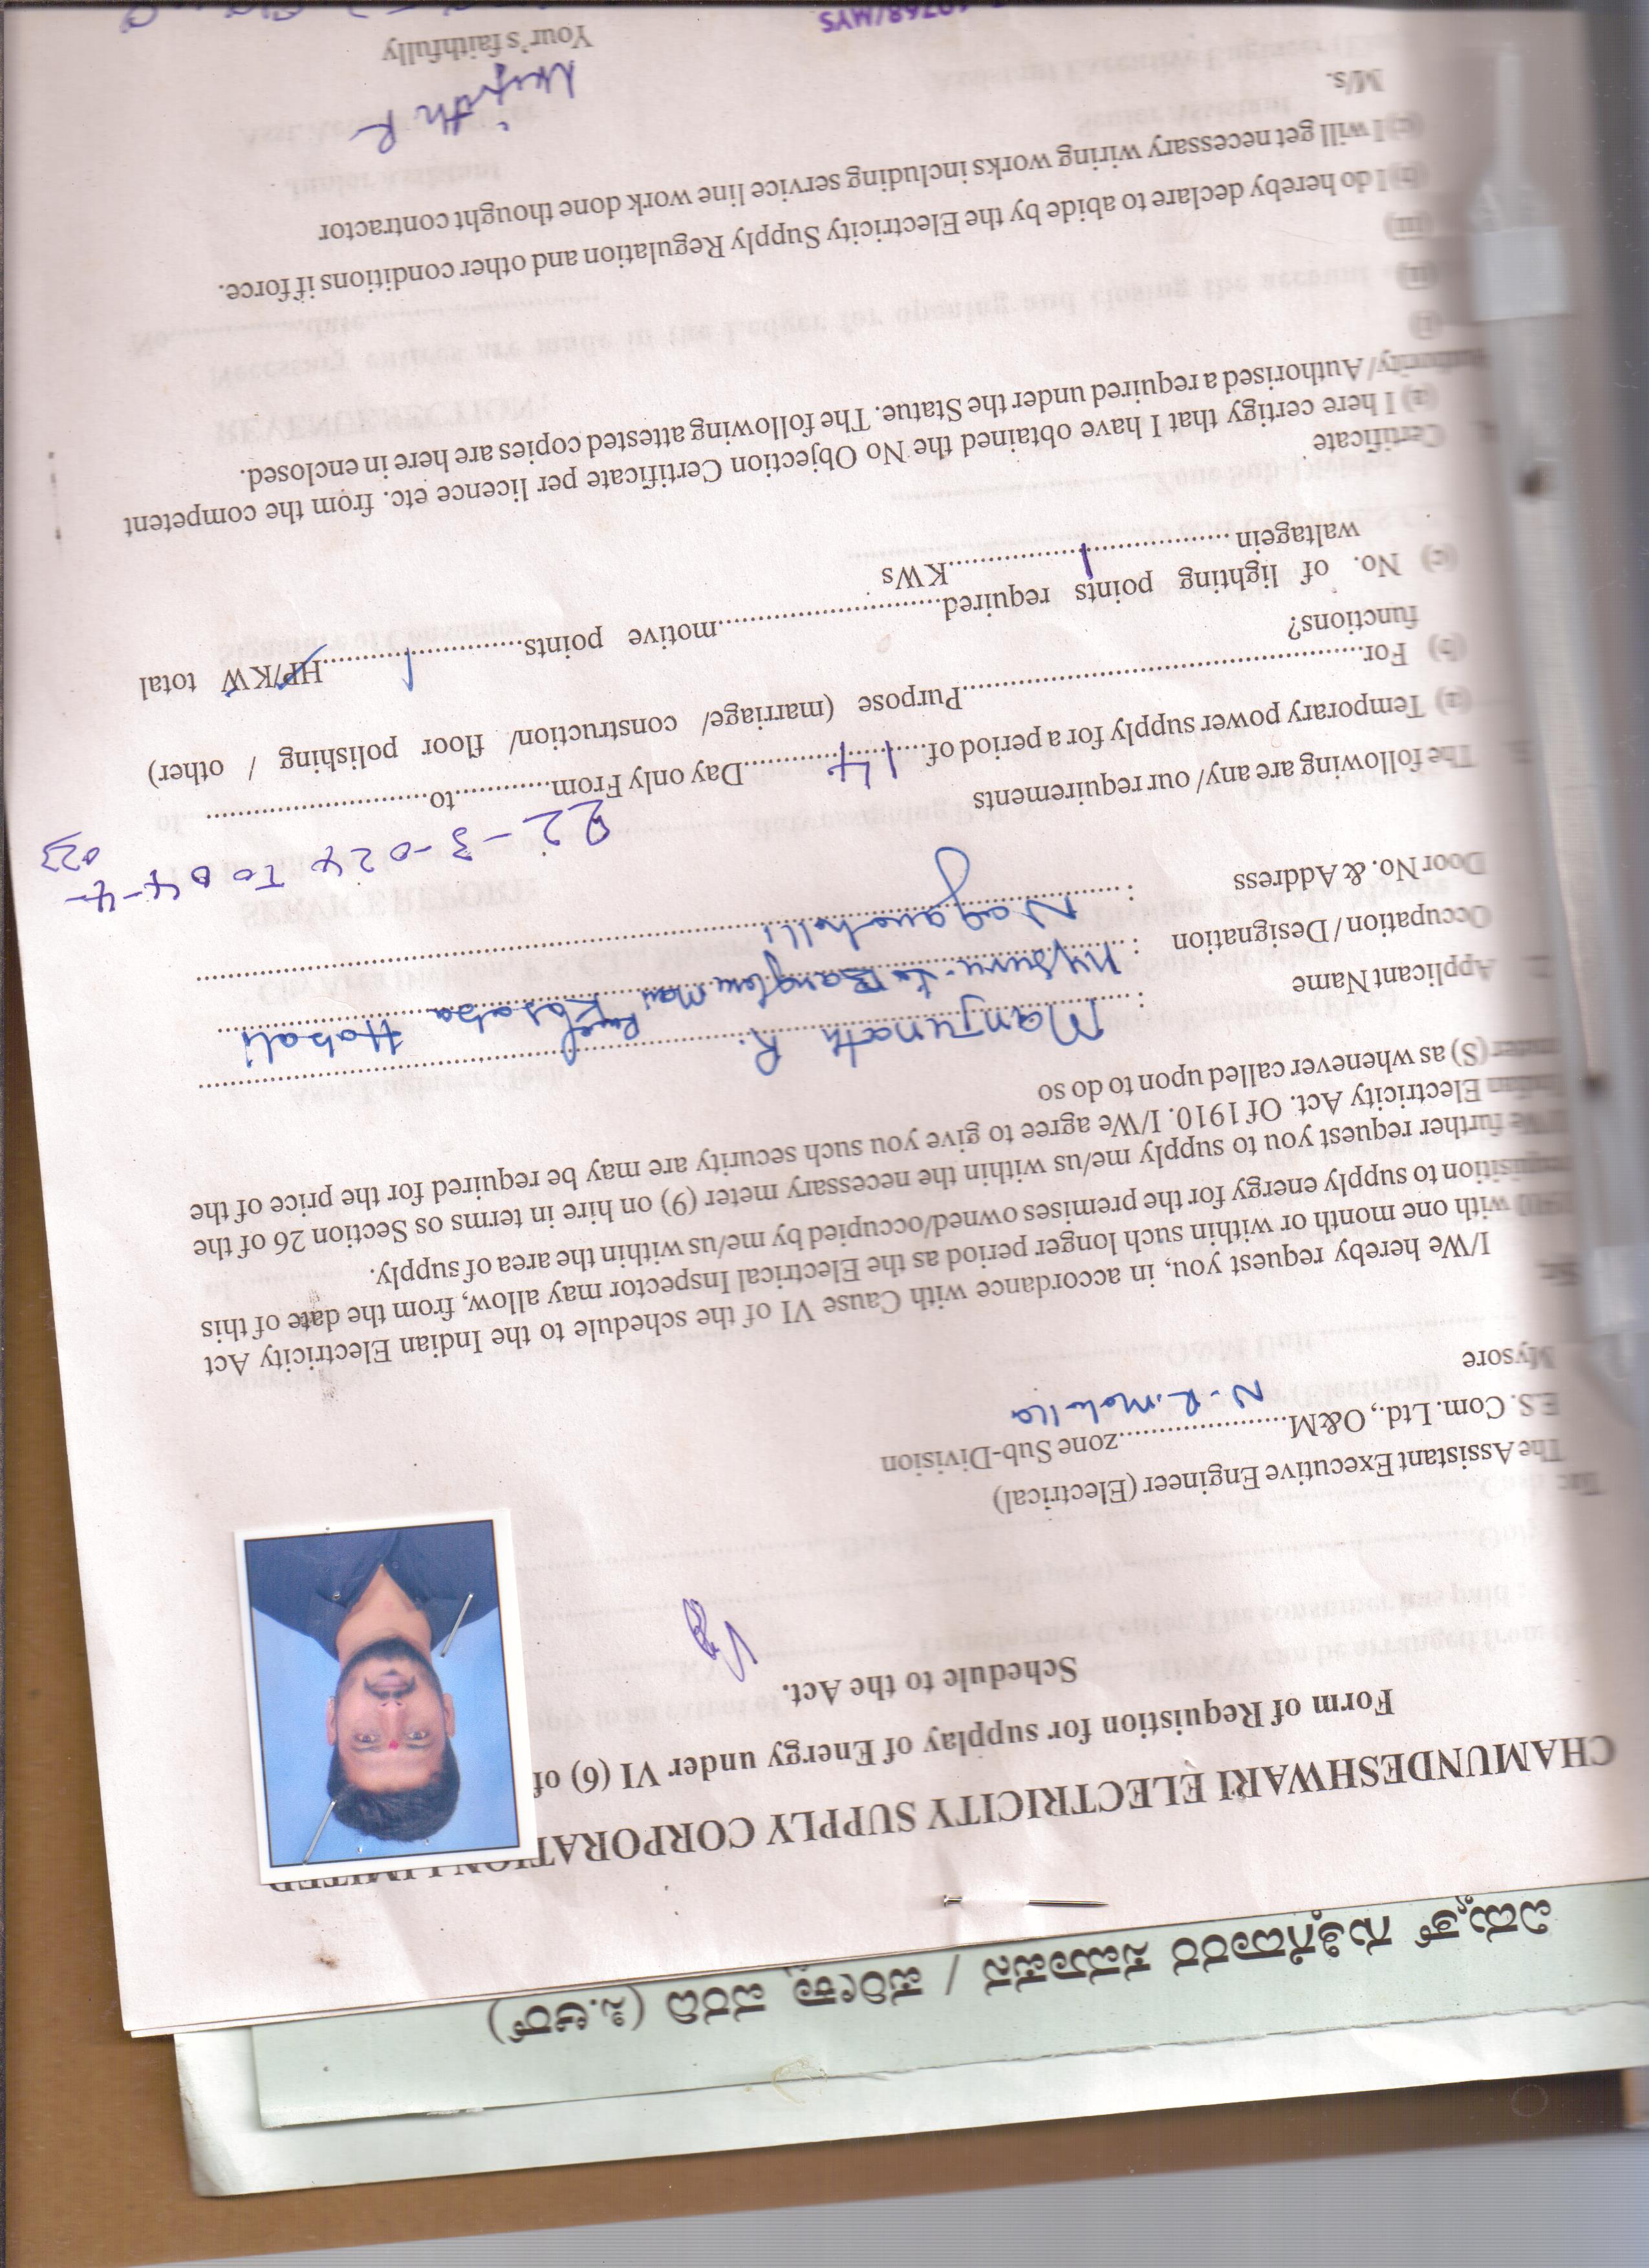 ವಿದ್ಯುತ್ ಗುತ್ತಿಗೆದಾರರ ಸಮಾಪನ / ಪರೀಕ್ಷಾ ವರದಿ (ಸಿ.ಆರ್)
CHAMUNDESHWARI ELECTRICITY SUPPLY CORPORATION LIMITED
Form of Requistion for supplay of Energy under VI (6) of
Schedule to the Act.
The Assistant Executive Engineer (Electrical)
E.S. Com. Ltd., O&M..........N.R.Mohalla..........zone Sub-Division
Mysore
Sir,
I/We hereby request you, in accordance with Cause VI of the schedule to the Indian Electricity Act
1910 with one month or within such longer period as the Electrical Inspector may allow, from the date of this
requisition to supply energy for the premises owned/occupied by me/us within the area of supply.
I/We further request you to supply me/us within the necessary meter (9) on hire in terms os Section 26 of the
Indian Electricity Act. Of 1910. I/We agree to give you such security are may be required for the price of the
meter (S) as whenever called upon to do so
Applicant Name : Manjunath R.
Occupation / Designation : Mysuru to Road Kasaba Hobali
Door No. & Address : Naganahalli
The following are any/ our requirements
22-3-024 To 04-4-
023
(a) Temporary power supply for a period of....14....Day only From..........to..........
(b) For..........Purpose (marriage/ construction/ floor polishing / other)
functions?
(c) No. of lighting points required..........motive points..........1..........HP/KW total
waltagein..........1..........KWs
Certificate
(a) I here certigy that I have obtained the No Objection Certificate per licence etc. from the competent
Authority/Authorised a required under the Statue. The following attested copies are here in enclosed.
(i)
(ii)
(iii)
(b) I do hereby declare to abide by the Electricity Supply Regulation and other conditions if force.
(c) I will get necessary wiring works including service line work done thought contractor
M/s.
Your's faithfully
10768/MYS